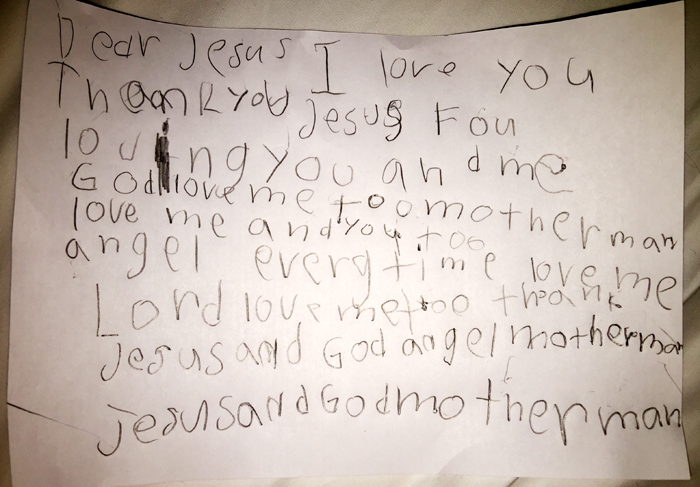 Dear Jesus I love you
Thank you Jesus Fou
loving you and me
God love me too mother man
love me and you too
angel every time love me
Lord love me too thank
Jesus and God angel mother man
Jesus and God mother man